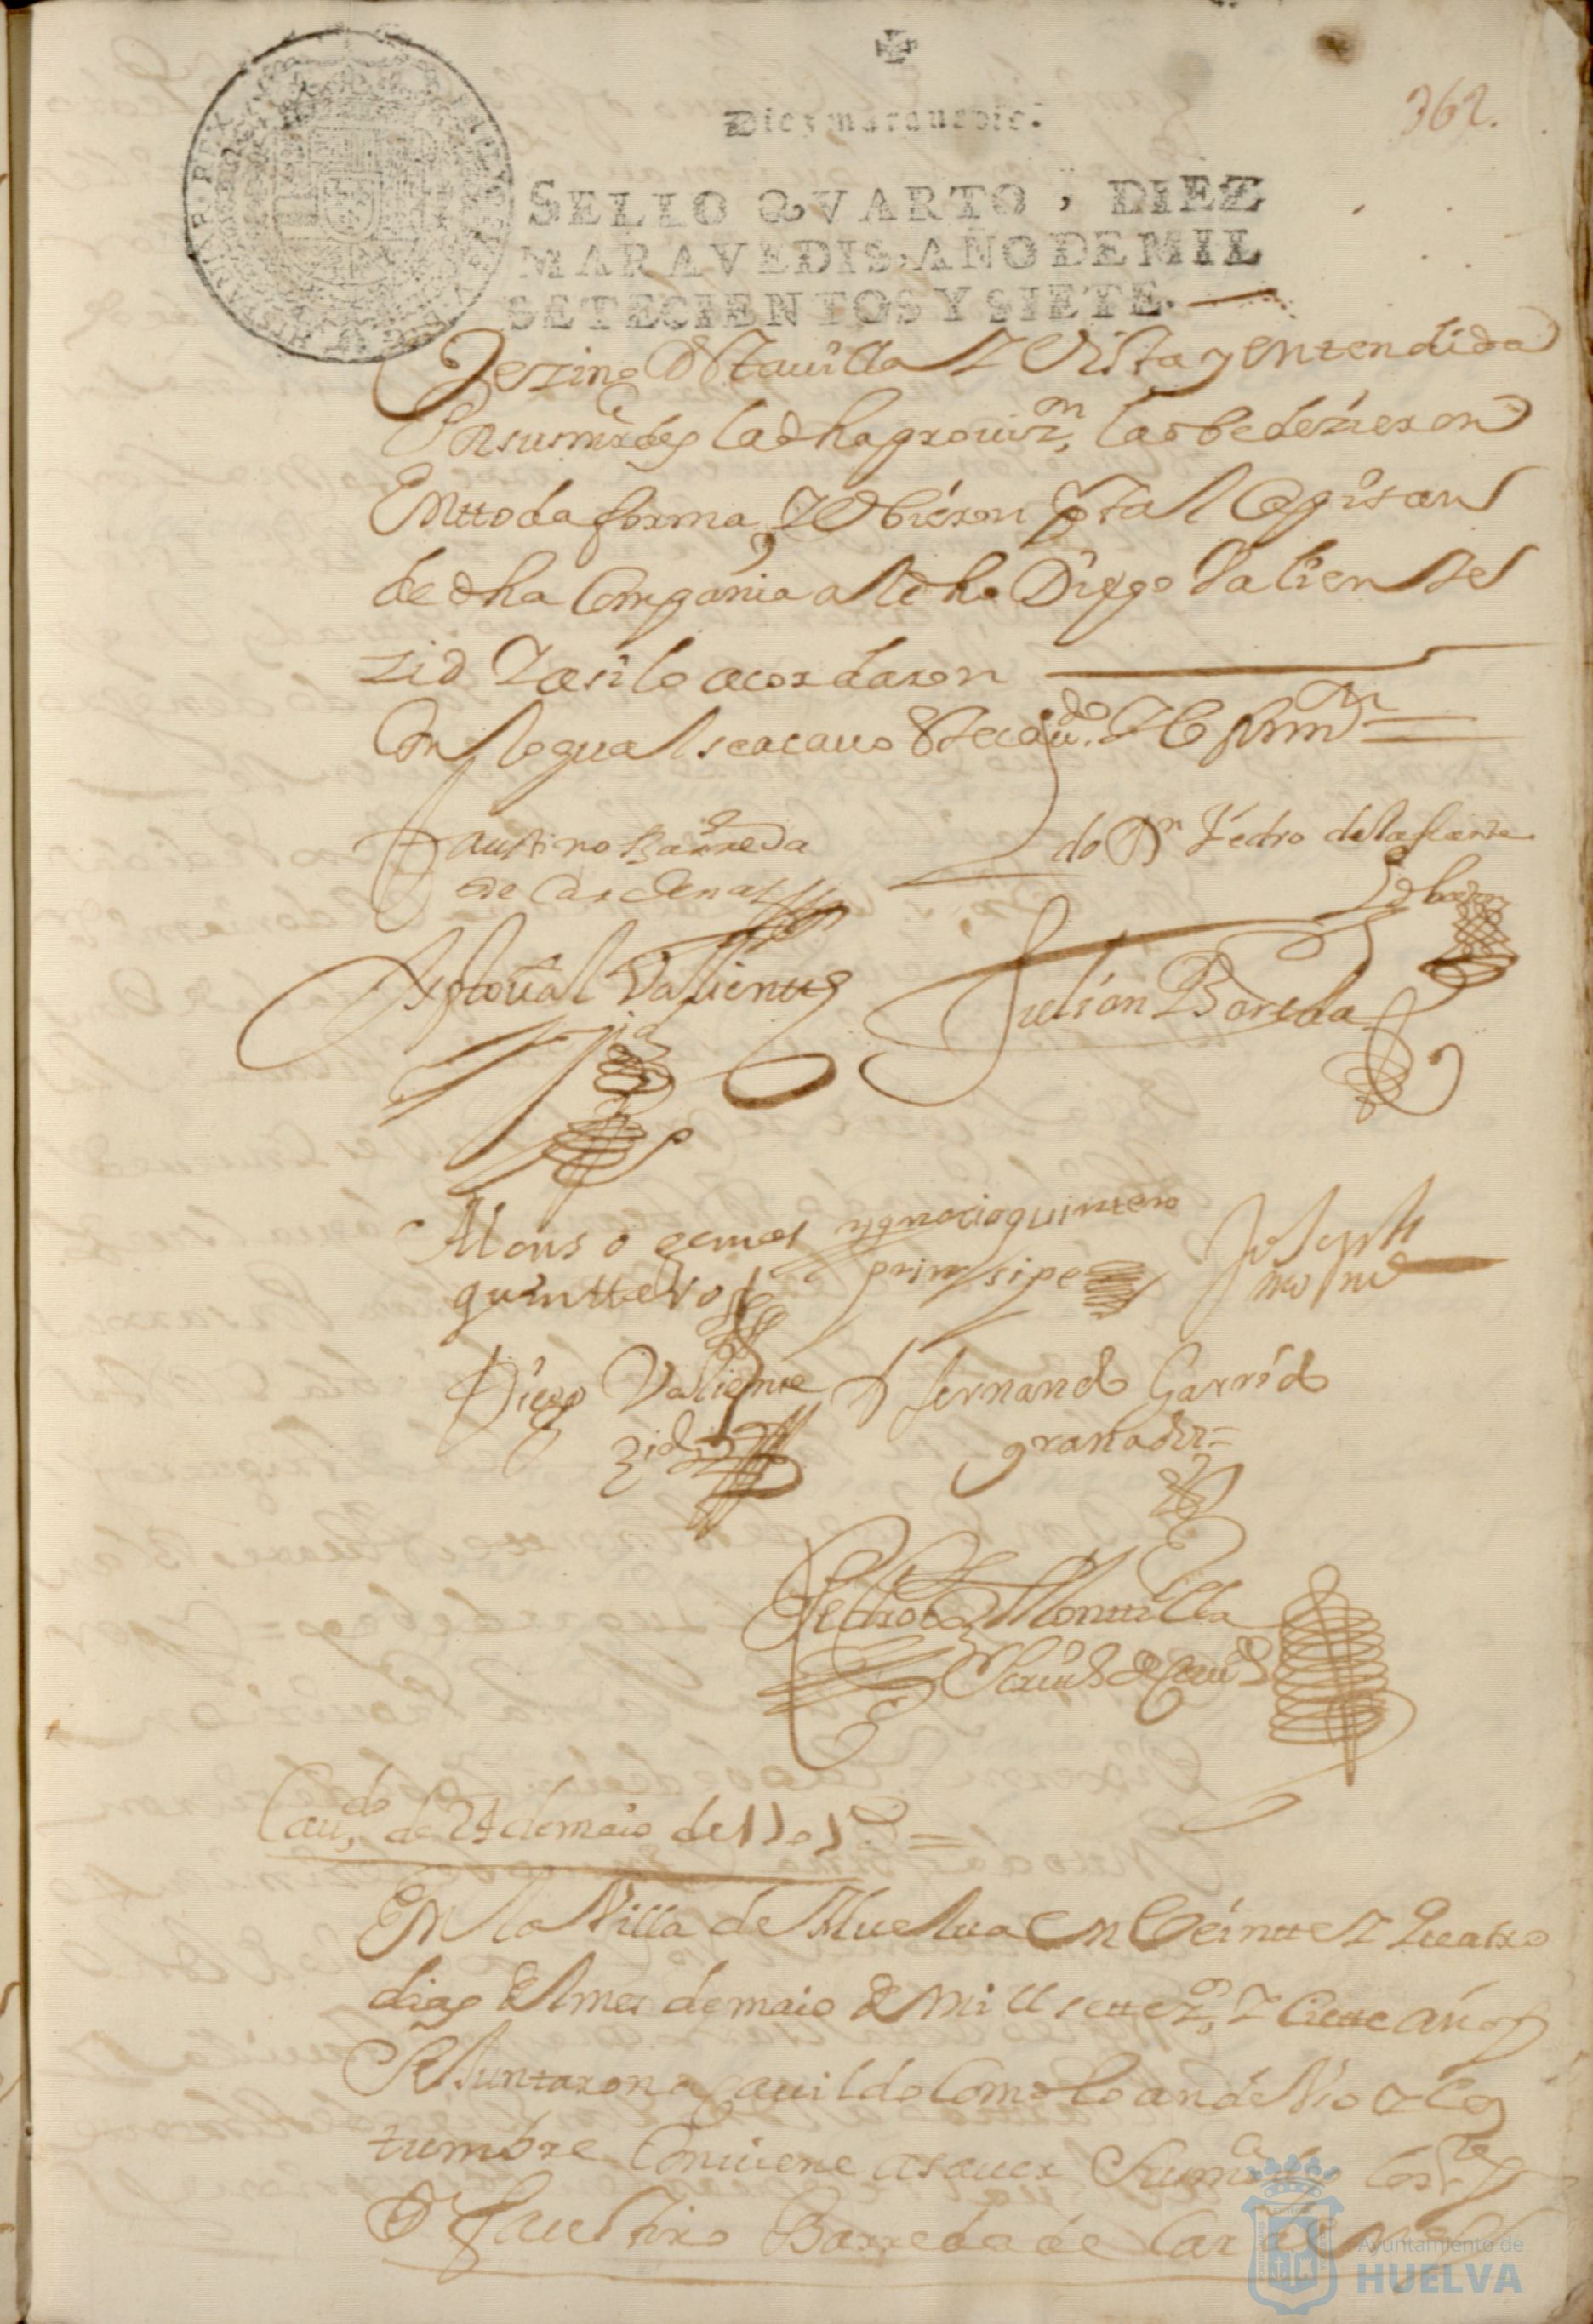 362.
Diez marauedis.
SELLO QVARTO, DIEZ
MARAVEDIS, AÑO DE MIL
SETECIENTOS Y SIETE.
Vezino Destauilla Z Vista y entendida
Por sus mrdes la dha prouizn, la obedezieron
En ttoda forma, Z Obieron por tal Capitan
de dha Compania al dho Diego Valiente
zid Z asi lo acordaron
Con lo qual se acauo Este cauido. Z lo firmn
Faustino Barreda
de Cardenas
do Dn Pedro de la fuente
Xptoual Valiente
Julian Bareda
Alonso
quinttero
ygnacio quintero
prinsipe
Joseph
Diego Valiente
zid
D fernando Garrido
granado
Pedro de Monttilla
Scriuo de Cauo
Cauido de 24 de maio de 1707
En la Villa de Huelua en Veintte Z quatro
dias del mes de maio de mill settezos, Z Ciette años
Se Juntaron a Cauildo Como lo an de Vso Z Cos
tumbre Conuiene asauer Sus mrdes
Dn Faustino Barreda de Cardenas
Ayuntamiento de
HUELVA